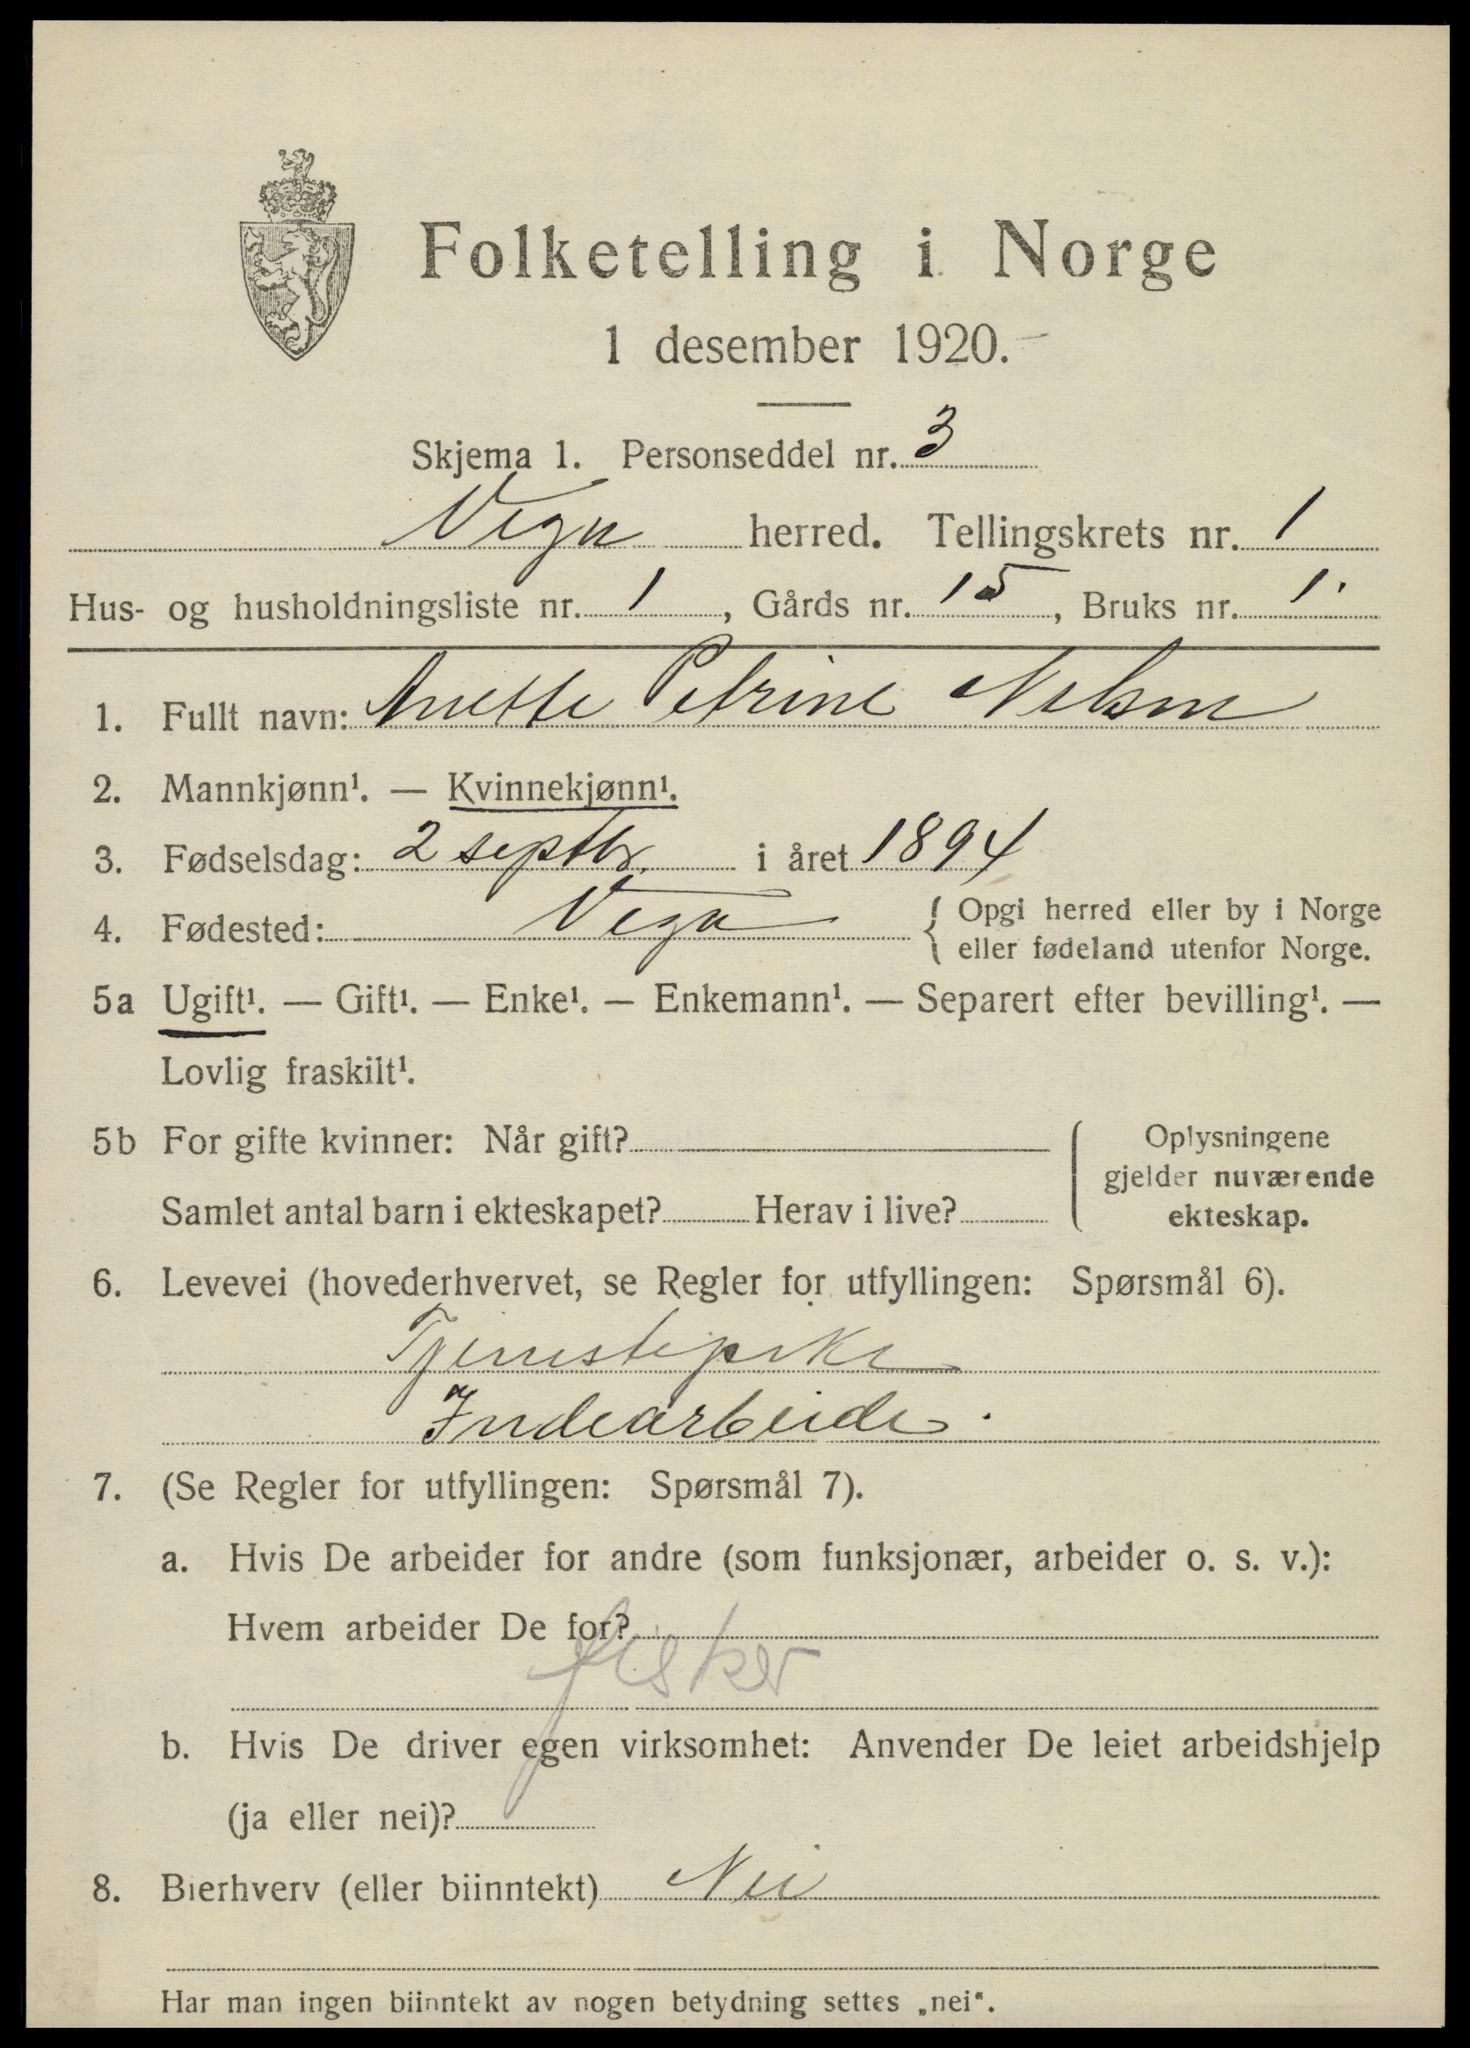 Folketelling i Norge
1 desember 1920.
Skjema 1. Personseddel nr. 3
Vega herred. Tellingskrets nr. 1
Hus- og husholdningsliste nr. 1, Gårds nr. 15, Bruks nr. 1
1. Fullt navn: Anette Petrine Nilsen
2. Mannkjønn¹. — Kvinnekjønn¹.
3. Fødselsdag: 2 septbr. i året 1894
4. Fødested: Vega { Opgi herred eller by i Norge
eller fødeland utenfor Norge.
5a Ugift¹. — Gift¹. — Enke¹. — Enkemann¹. — Separert efter bevilling¹. —
Lovlig fraskilt¹.
5b For gifte kvinner: Når gift? { Oplysningene
gjelder nuværende
Samlet antal barn i ekteskapet? Herav i live? ekteskap.
6. Levevei (hovederhvervet, se Regler for utfyllingen: Spørsmål 6).
Tjenestepike
Indearbeide.
7. (Se Regler for utfyllingen: Spørsmål 7).
a. Hvis De arbeider for andre (som funksjonær, arbeider o. s. v.):
Hvem arbeider De for?
fisker
b. Hvis De driver egen virksomhet: Anvender De leiet arbeidshjelp
(ja eller nei)?
8. Bierhverv (eller biinntekt) Nei
Har man ingen biinntekt av nogen betydning settes „nei".